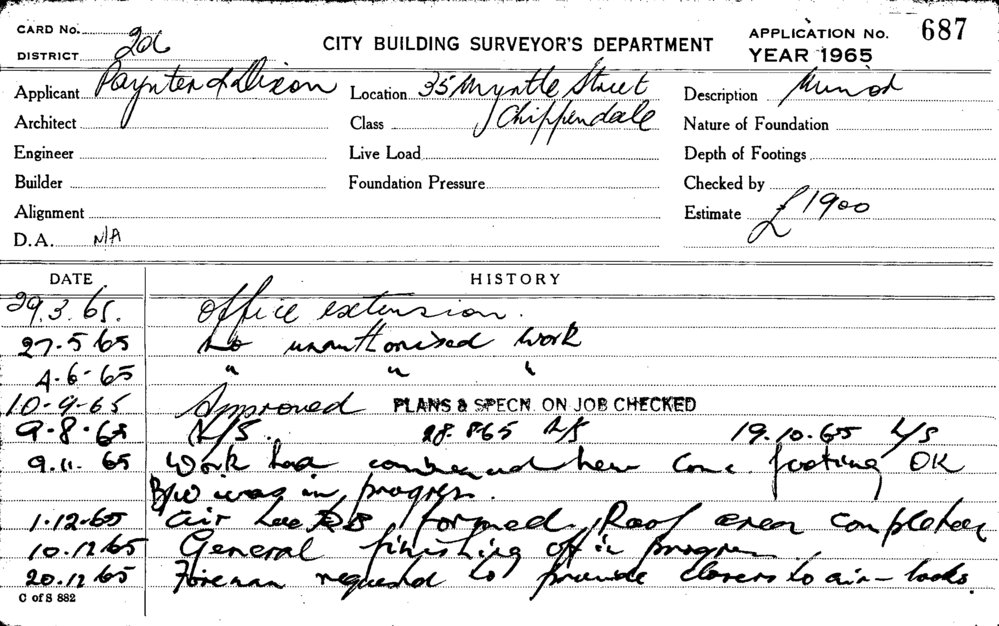 CARD No.
DISTRICT 2d
CITY BUILDING SURVEYOR'S DEPARTMENT
APPLICATION No. 687
YEAR 1965
Applicant Paynter & Dixon Location 35 Myrtle Street Description
Architect Class Chippendale Nature of Foundation
Engineer Live Load Depth of Footings
Builder Foundation Pressure Checked by
Alignment Estimate £1900
D.A. N/A
DATE HISTORY
29.3.65. Office extension.
27.5.65 No unauthorised work
4.6.65 " " "
10-9-65 Approved PLANS & SPECN. ON JOB CHECKED
9.8.65 N/S. 28.8.65 N/S 19.10.65 N/S
9.11.65 Work had commenced here conc. footing OK
B/W was in progress.
1.12.65 Air formed. Roof area completed
10.12.65 General finishing off in progress.
20.12.65 Foreman requested to provide closers to air-locks.
C of S 882